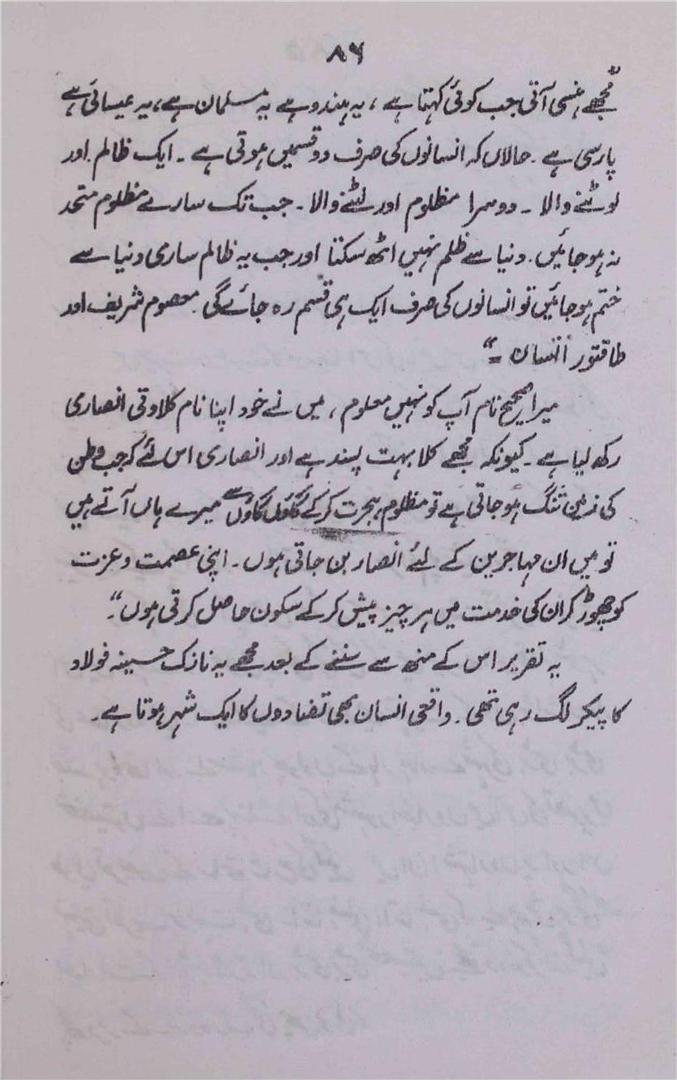 ۸۶
”مجھے ہنسی آتی جب کوئی کہتا ہے، یہ ہندو ہے یہ مسلمان ہے، یہ عیسائی ہے
پارسی ہے۔ حالاں کہ انسانوں کی صرف دو قسمیں ہوتی ہے۔ ایک ظالم اور
لوٹنے والا۔ دوسرا مظلوم اور لٹنے والا۔ جب تک سارے مظلوم متحد
نہ ہو جائیں۔ دنیا سے ظلم نہیں اٹھ سکتا اور جب یہ ظالم ساری دنیا سے
ختم ہو جائیں تو انسانوں کی صرف ایک ہی قسم رہ جائے گی۔ معصوم شریف اور
طاقتور انسان۔“
میرا صحیح نام آپ کو نہیں معلوم، میں نے خود اپنا نام کلاوتی انصاری
رکھ لیا ہے۔ کیونکہ مجھے کلا بہت پسند ہے اور انصاری اس لئے کہ جب وطن
کی زمین تنگ ہو جاتی ہے تو مظلوم ہجرت کر کے گاؤں گاؤں سے میرے ہاں آتے ہیں
تو میں ان مہاجرین کے لئے انصار بن جاتی ہوں۔ اپنی عصمت و عزت
کو چھوڑ کر ان کی خدمت میں ہر چیز پیش کر کے سکون حاصل کرتی ہوں“۔
یہ تقریر اس کے منھ سے سننے کے بعد مجھے یہ نازک حسینہ فولاد
کا پیکر لگ رہی تھی۔ واقعی انسان بھی تضادوں کا ایک شہر ہوتا ہے۔